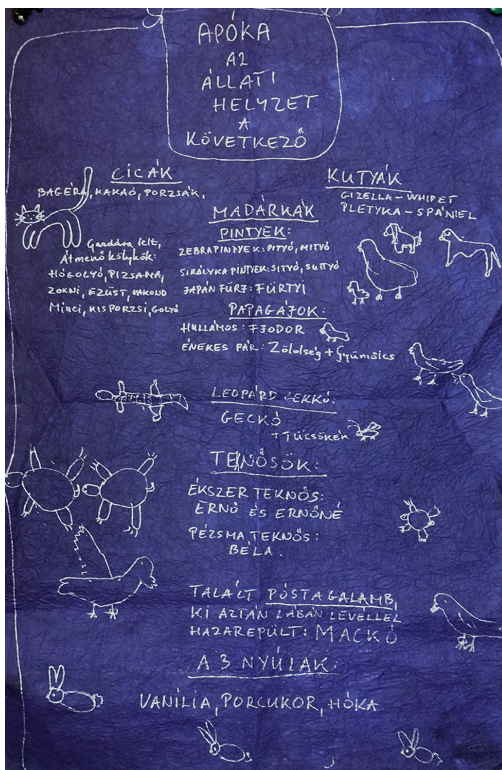 APÓKA
AZ
ÁLLATI
HELYZET
A
KÖVETKEZŐ
CICÁK
BAGÉRA, KAKAÓ, PORZSÁK,
Gazdára lelt,
Átmenő kölykök:
HÓGOLYÓ, PIZSAMA,
ZOKNI, EZÜST, VAKOND
Minci, KISPORZSI, GOLYÓ
KUTYÁK
GIZELLA – WHIPET
PLETYKA – SPÁNIEL
MADÁRKÁK
PINTYEK:
ZEBRAPINTYEK: PITYŐ, MITYŐ
SIRÁLYKA PINTYEK: SITYŐ, SUTTYŐ
JAPÁN FÜRJ: FÜRTYI
PAPAGÁJOK:
HULLÁMOS: FJODOR
ÉNEKES PÁR: Zöldség + Gyümölcs
LEOPÁRD GEKKÓ:
GECKÓ
+ TÜCSÖKEK
TEKNŐSÖK:
ÉKSZER TEKNŐS:
ERNŐ ÉS ERNŐNÉ
PÉZSMA TEKNŐS:
BÉLA.
TALÁLT PÓSTAGALAMB,
KI AZTÁN LÁBÁN LEVÉLLEL
HAZAREPÜLT: MACKÓ
A 3 NYÚLAK:
VANÍLIA, PORCUKOR, HÓKA